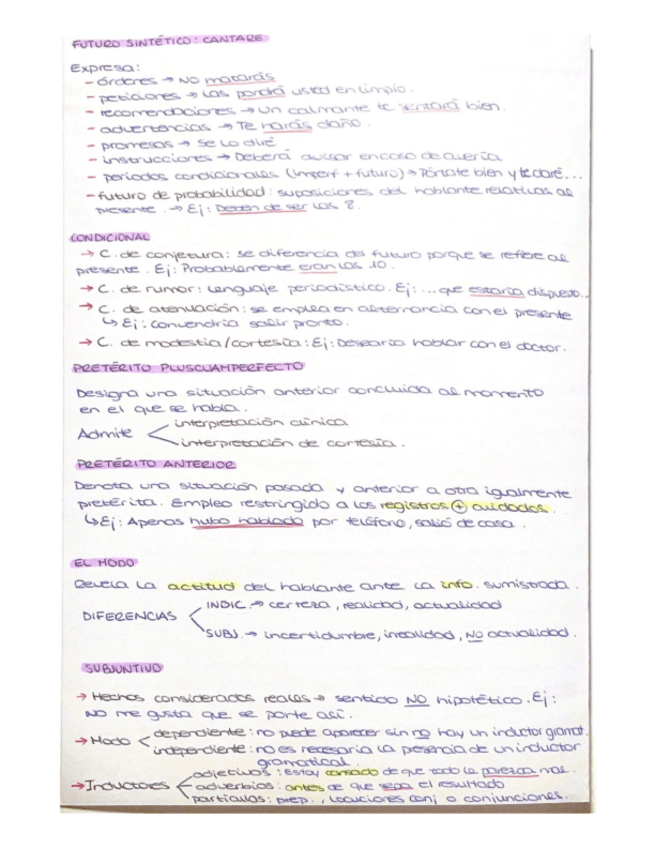 FUTURO SINTÉTICO: CANTARE
Expresa:
- órdenes → No matarás
- peticiones → Las pondrá usted en limpio.
- recomendaciones → Un calmante te sentará bien.
- advertencias → Te harás daño.
- promesas → Se lo diré
- instrucciones → Deberá avisar en caso de avería
- periodos condicionales (imperf + futuro) → Pórtate bien y te daré...
- futuro de probabilidad: suposiciones del hablante relativas al
presente. → Ej: Deben de ser las 8.
CONDICIONAL
→ C. de conjetura: se diferencia del futuro porque se refiere al
presente. Ej: Probablemente eran las 10.
→ C. de rumor: Lenguaje periodístico. Ej: ... que estaría dispuesto..
→ C. de atenuación: se emplea en alternancia con el presente
↳ Ej: convendría salir pronto.
→ C. de modestia/cortesía: Ej: Desearía hablar con el doctor.
PRETÉRITO PLUSCUAMPERFECTO
Designa una situación anterior concluida al momento
en el que se habla.
Admite < interpretación clínica
interpretación de cortesía.
PRETÉRITO ANTERIOR
Denota una situación pasada y anterior a otra igualmente
pretérita. Empleo restringido a los registros ⊕ cuidados.
↳ Ej: Apenas hubo hablado por teléfono, salió de casa.
EL MODO
Revela la actitud del hablante ante la info. sumistrada.
DIFERENCIAS < INDIC. → certeza, realidad, actualidad
SUBJ. → incertidumbre, irrealidad, NO actualidad.
SUBJUNTIVO
→ Hechos considerados reales → sentido NO hipotético. Ej:
No me gusta que se porte así.
→ Modo < dependiente: no puede aparecer sin no hay un inductor gramat.
independiente: no es necesaria la presencia de un inductor
gramatical.
→ Inductores < adjetivos: Estoy cansado de que todo le parezca mal.
adverbios: antes de que sepa el resultado
partículas: prep., locuciones conj o conjunciones.